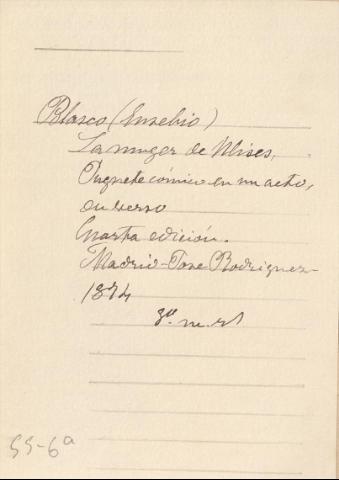 Blasco (Eusebio)
La muger de Ulises,
Juguete cómico en un acto,
en verso
Cuarta edición.
Madrid - Jose Rodriguez -
1874
8º m. rl
55-6ª